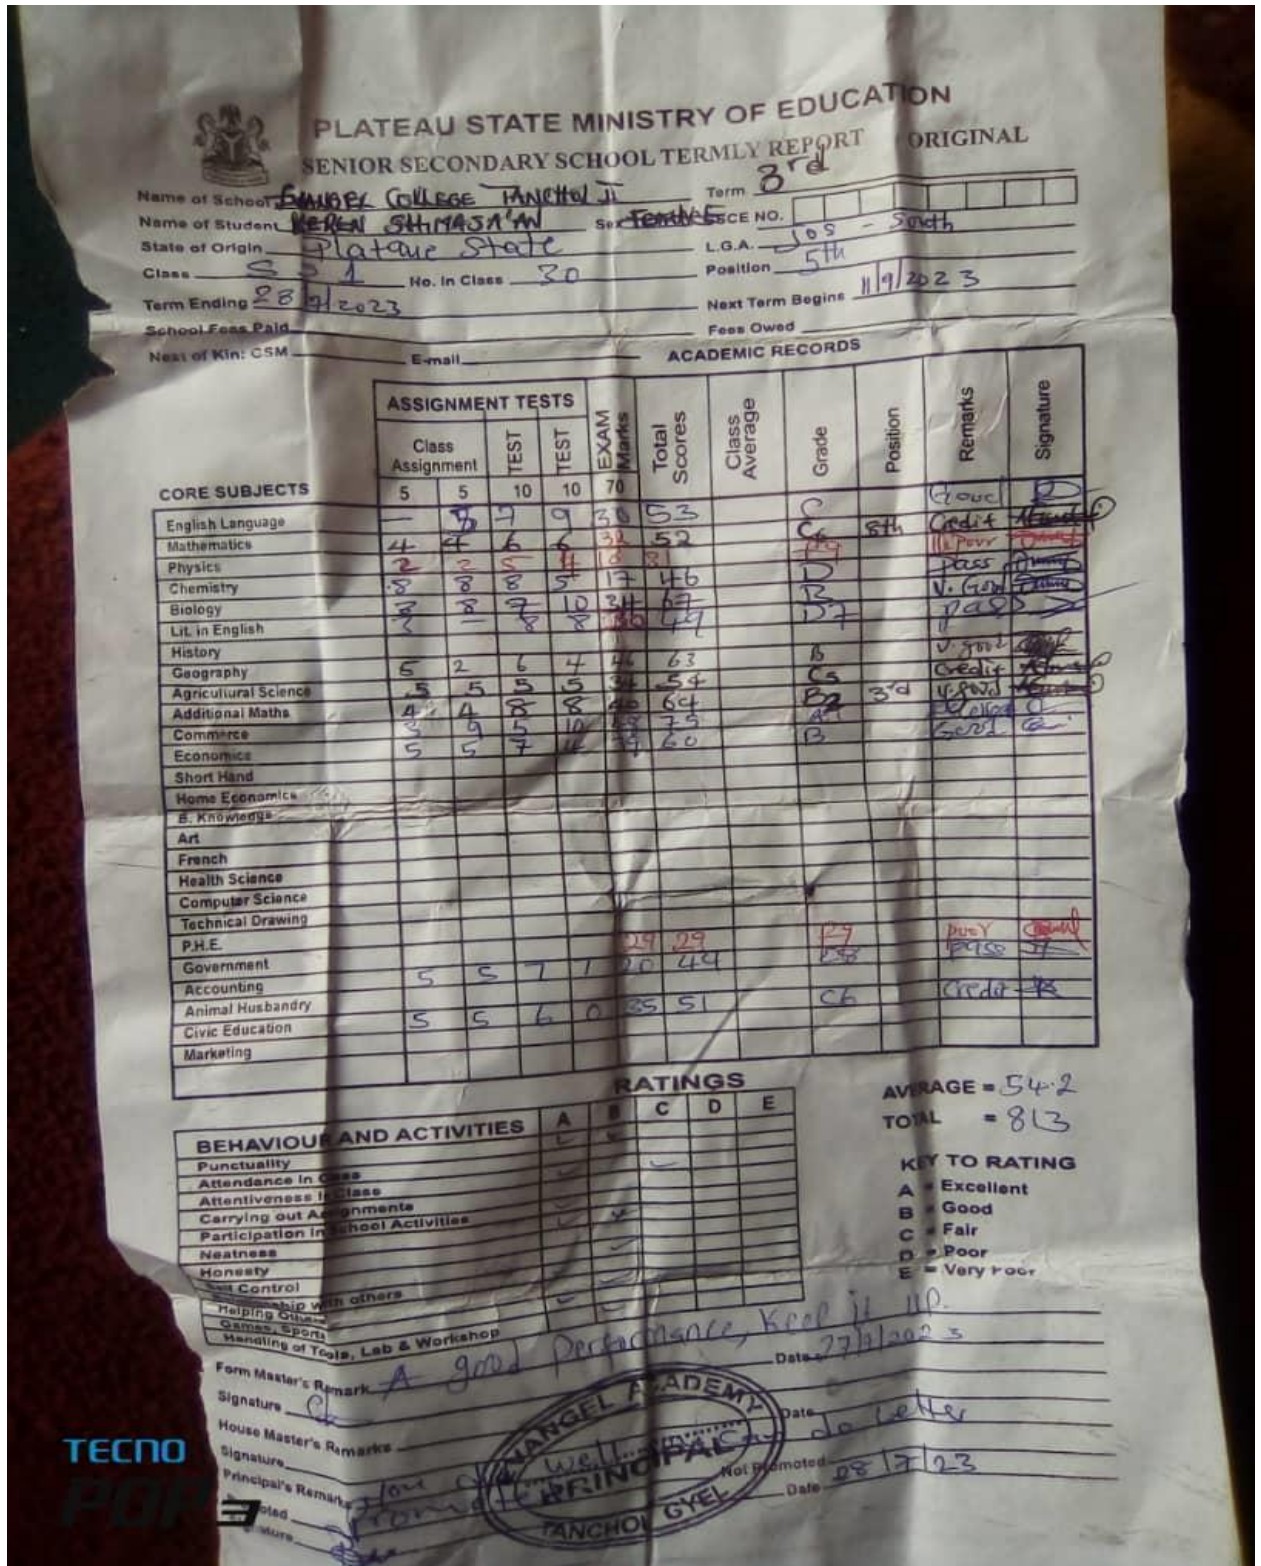 PLATEAU STATE MINISTRY OF EDUCATION
SENIOR SECONDARY SCHOOL TERMLY REPORT ORIGINAL
Name of School COLLEGE Term 3rd
Name of Student KEREN SHIMASA'AN Sex Female SSCE NO.
State of Origin Plataue State L.G.A. Jos - South
Class S S 1 No. In Class 30 Position 5th
Term Ending 28/7/2023 Next Term Begins 11/9/2023
School Fees Paid Fees Owed
Next of Kin: CSM E-mail
ACADEMIC RECORDS
ASSIGNMENT TESTS EXAM Marks Total Scores Class Average Grade Position Remarks Signature
Class Assignment TEST TEST
CORE SUBJECTS 5 5 10 10 70
English Language — 7 9 30 53 C Good
Mathematics 4 4 6 6 32 52 C6 8th Credit
Physics 2 2 5 4 18 31 F9 poor
Chemistry 8 8 8 5 17 46 D pass
Biology 8 8 7 10 34 67 B V. Good
Lit. in English 3 — 8 8 30 49 D7 pass
History
Geography 5 2 6 4 46 63 B V. good
Agricultural Science 5 5 5 5 34 54 C5 Credit
Additional Maths 4 4 8 8 40 64 B2 3rd V. good
Commerce 9 5 10 48 75 A1
Economics 5 5 7 60 B Good
Short Hand
Home Economics
B. Knowledge
Art
French
Health Science
Computer Science
Technical Drawing
P.H.E.
Government 29 29 F9 poor
Accounting 5 5 7 7 20 44 E8 pass
Animal Husbandry
Civic Education 5 5 6 0 35 51 C6 Credit
Marketing
RATINGS
BEHAVIOUR AND ACTIVITIES A B C D E
Punctuality
Attendance in Class
Attentiveness in Class
Carrying out Assignments
Participation in School Activities
Neatness
Honesty
Control
with others
Helping Others
Games, Sports
Handling of Tools, Lab & Workshop
AVERAGE = 54.2
TOTAL = 813
KEY TO RATING
A = Excellent
B = Good
C = Fair
D = Poor
E = Very Poor
Form Master's Remark A good performance, Keep it up.
Signature Date 27/7/2023
House Master's Remarks
Signature Date
Principal's Remark You well can do better
promoted Not Promoted
Date 28/7/23
ACADEMY
PRINCIPAL
TANCHOL GYEL
TECNO
POP 3